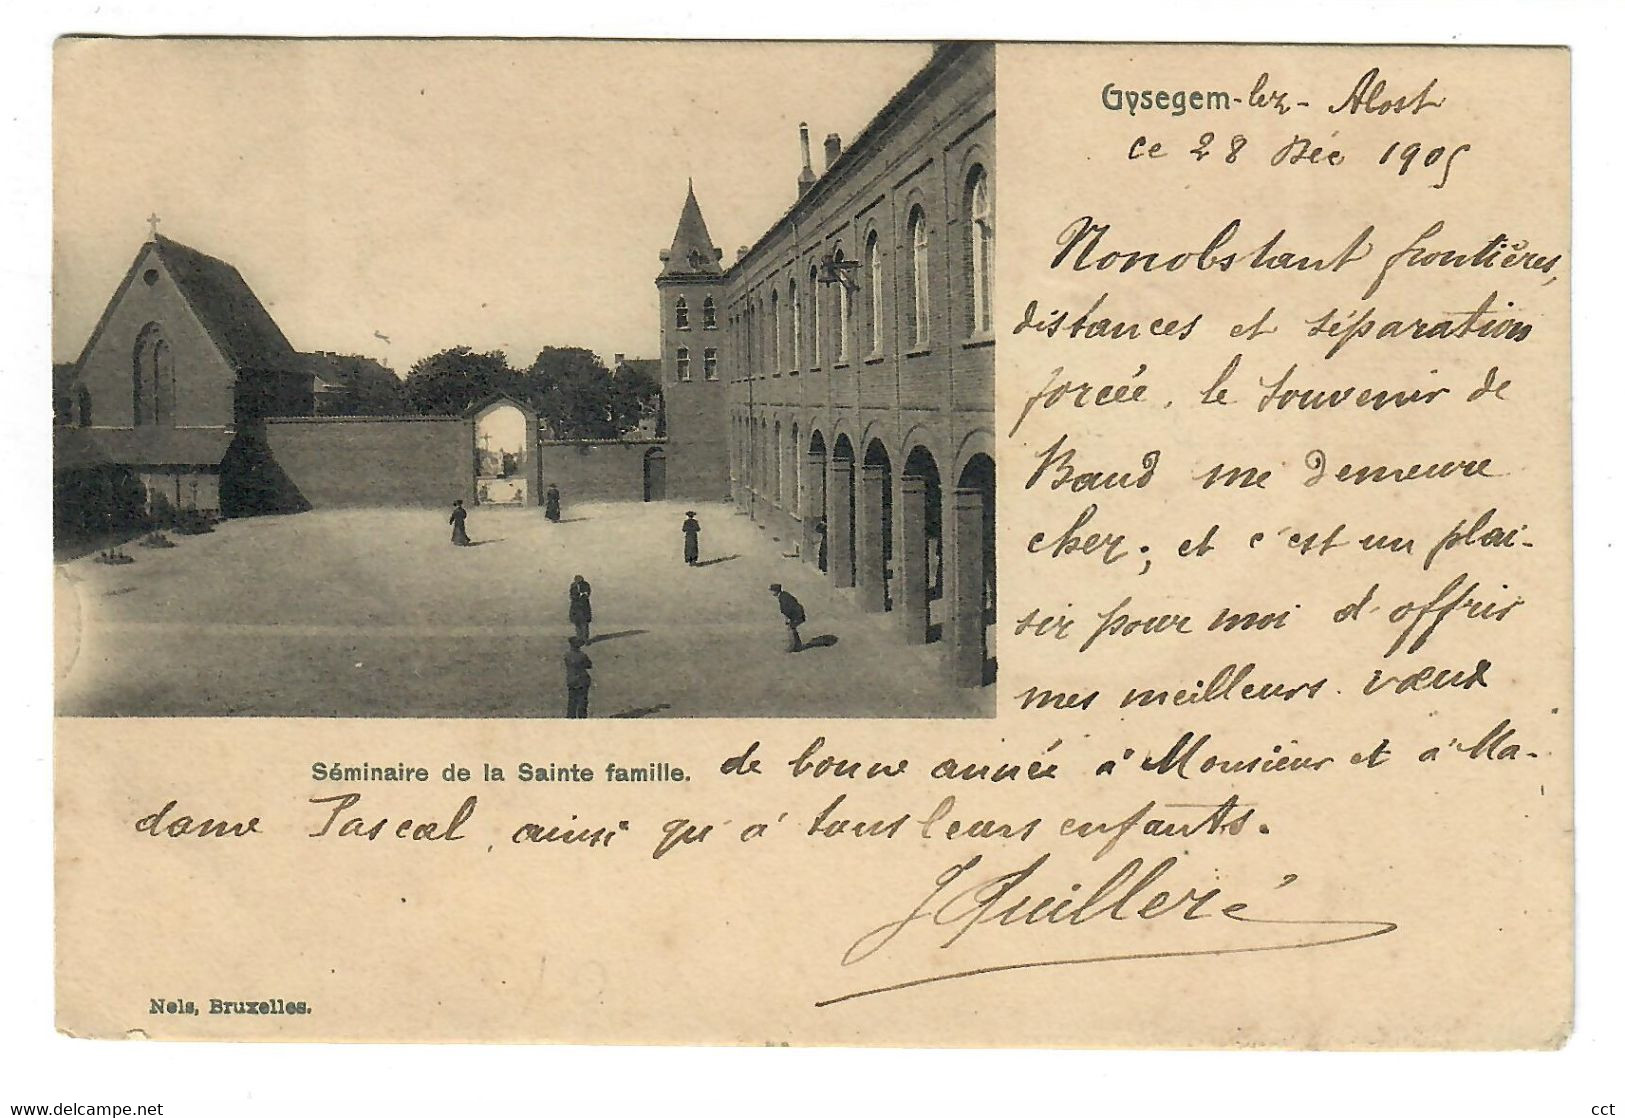 Gysegem-lez-Alost
ce 28 Déc 1905
Nonobstant frontières,
distances et séparation
forcée, le souvenir de
Baud me demeure
cher; et c'est un plai-
sir pour moi d'offrir
mes meilleurs vœux
Séminaire de la Sainte famille. de bonne année à Monsieur et à Ma-
dame Pascal, ainsi qu'à tous leurs enfants.
J Quilleré
Nels, Bruxelles.
delcampe.net
cct